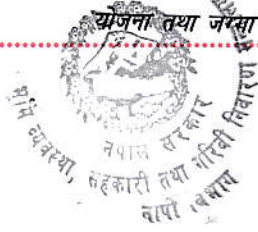 योजना तथा जग्गा
नेपाल सरकार
भूमि व्यवस्था, सहकारी तथा गरिबी निवारण
नापी विभाग